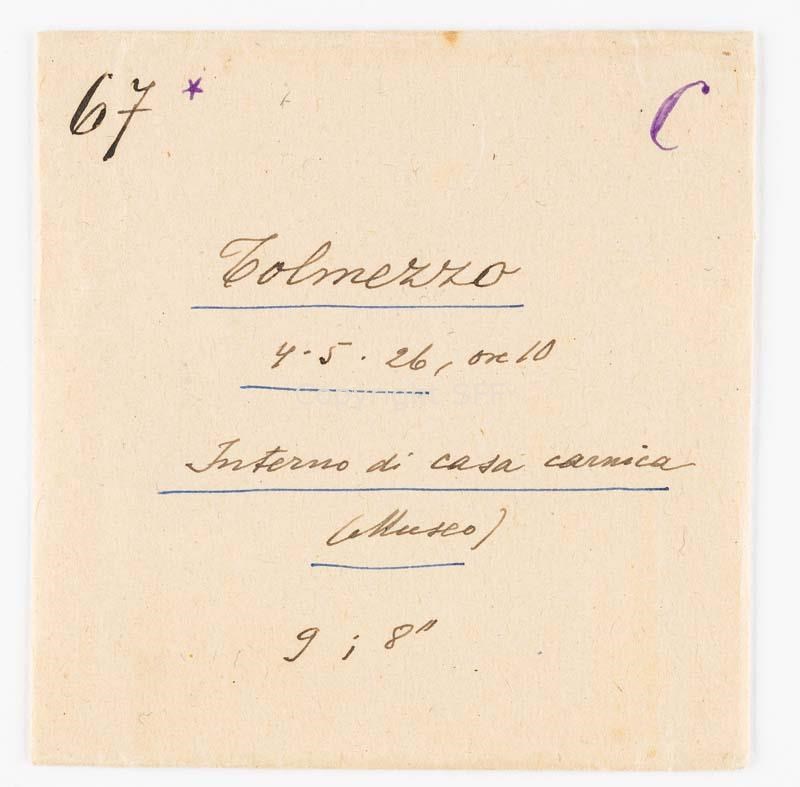 67 * C
Tolmezzo
4-5. 26, ore 10
Interno di casa carnica
(Museo)
9 ; 8"